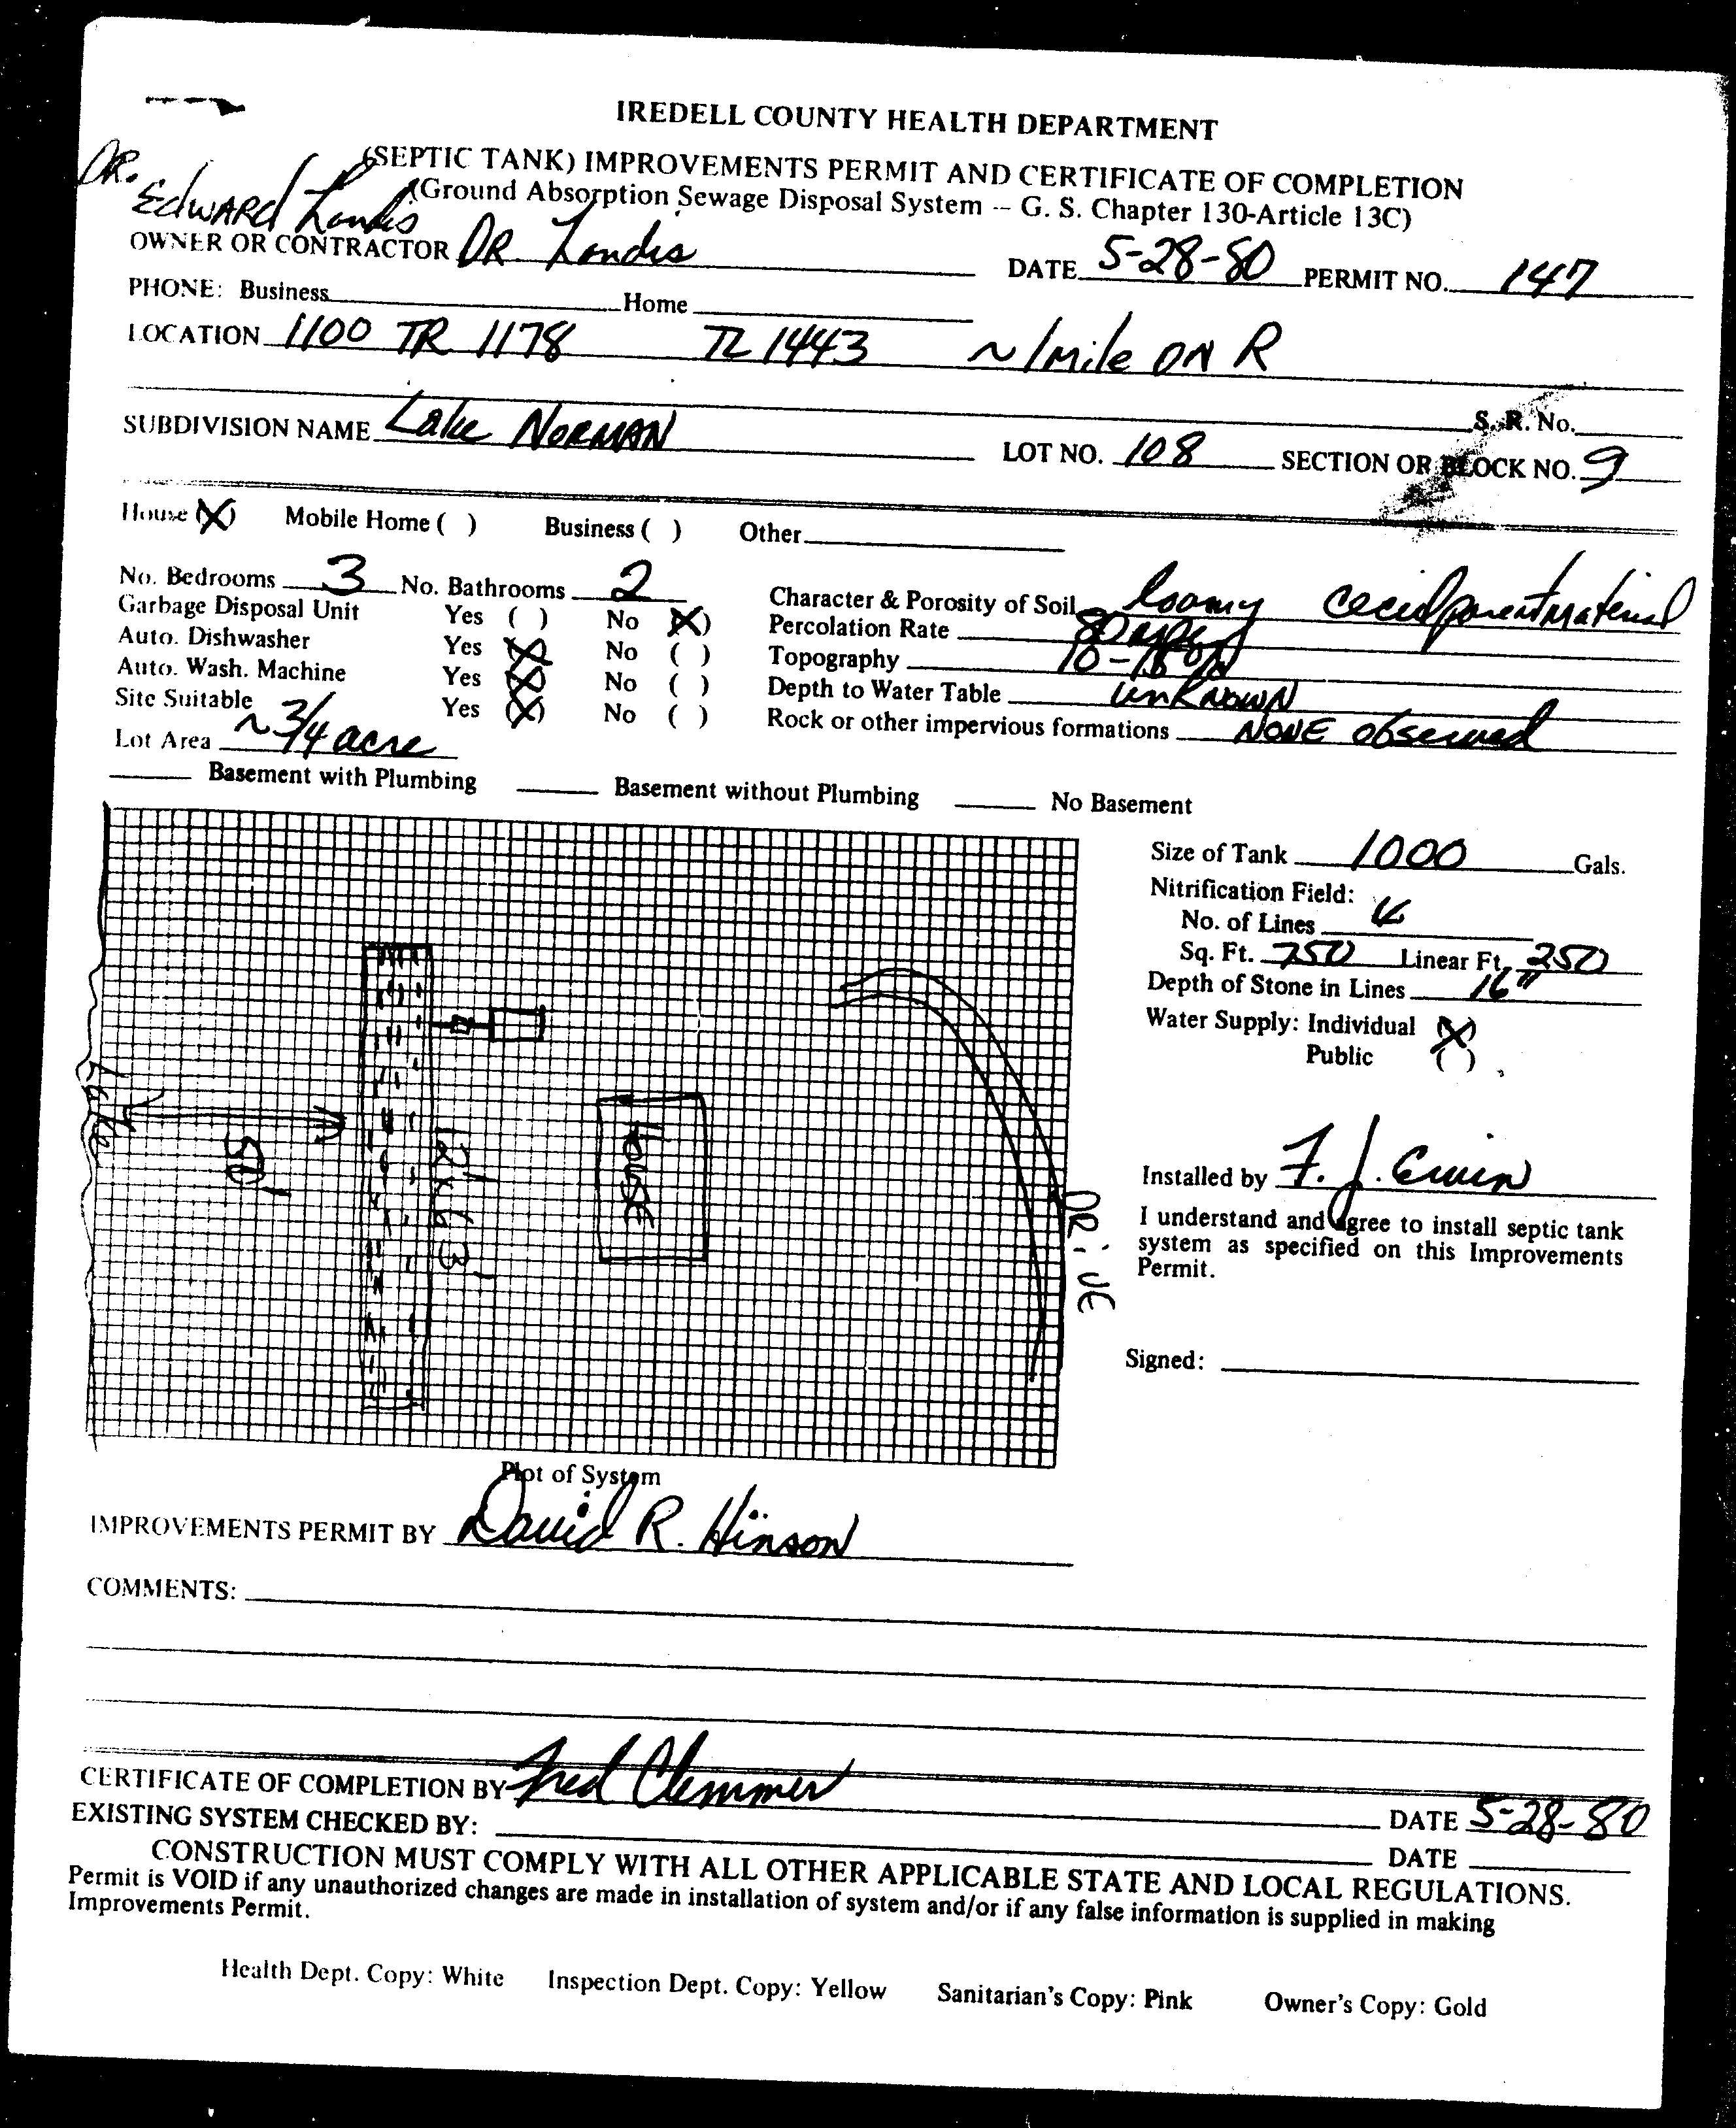 IREDELL COUNTY HEALTH DEPARTMENT
(SEPTIC TANK) IMPROVEMENTS PERMIT AND CERTIFICATE OF COMPLETION
(Ground Absorption Sewage Disposal System -- G. S. Chapter 130-Article 13C)
DR. Edward Landis
OWNER OR CONTRACTOR DR. Landis DATE 5-28-80 PERMIT NO. 147
PHONE: Business Home
LOCATION 1100 TR 1178 TL 1443 ~ 1 mile ON R
S. R. No.
SUBDIVISION NAME Lake NORMAN LOT NO. 108 SECTION OR BLOCK NO. 9
House (X) Mobile Home ( ) Business ( ) Other
No. Bedrooms 3 No. Bathrooms 2 Character & Porosity of Soil loamy cecil parent material
Garbage Disposal Unit Yes ( ) No (X) Percolation Rate 80
Auto. Dishwasher Yes (X) No ( ) Topography 10-15%
Auto. Wash. Machine Yes (X) No ( ) Depth to Water Table unknown
Site Suitable Yes (X) No ( ) Rock or other impervious formations NONE observed
Lot Area ~ 3/4 acre
Basement with Plumbing Basement without Plumbing No Basement
Size of Tank 1000 Gals.
Nitrification Field:
No. of Lines 4
Sq. Ft. 750 Linear Ft. 250
Depth of Stone in Lines 16"
Water Supply: Individual (X)
Public ( )
Lake
50'
12' x 63'
HOUSE
DRIVE
Installed by F. J. Ervin
I understand and agree to install septic tank
system as specified on this Improvements
Permit.
Signed:
Plot of System
IMPROVEMENTS PERMIT BY David R. Hinson
COMMENTS:
CERTIFICATE OF COMPLETION BY Fred Clemmer DATE 5-28-80
EXISTING SYSTEM CHECKED BY: DATE
CONSTRUCTION MUST COMPLY WITH ALL OTHER APPLICABLE STATE AND LOCAL REGULATIONS.
Permit is VOID if any unauthorized changes are made in installation of system and/or if any false information is supplied in making
Improvements Permit.
Health Dept. Copy: White Inspection Dept. Copy: Yellow Sanitarian's Copy: Pink Owner's Copy: Gold